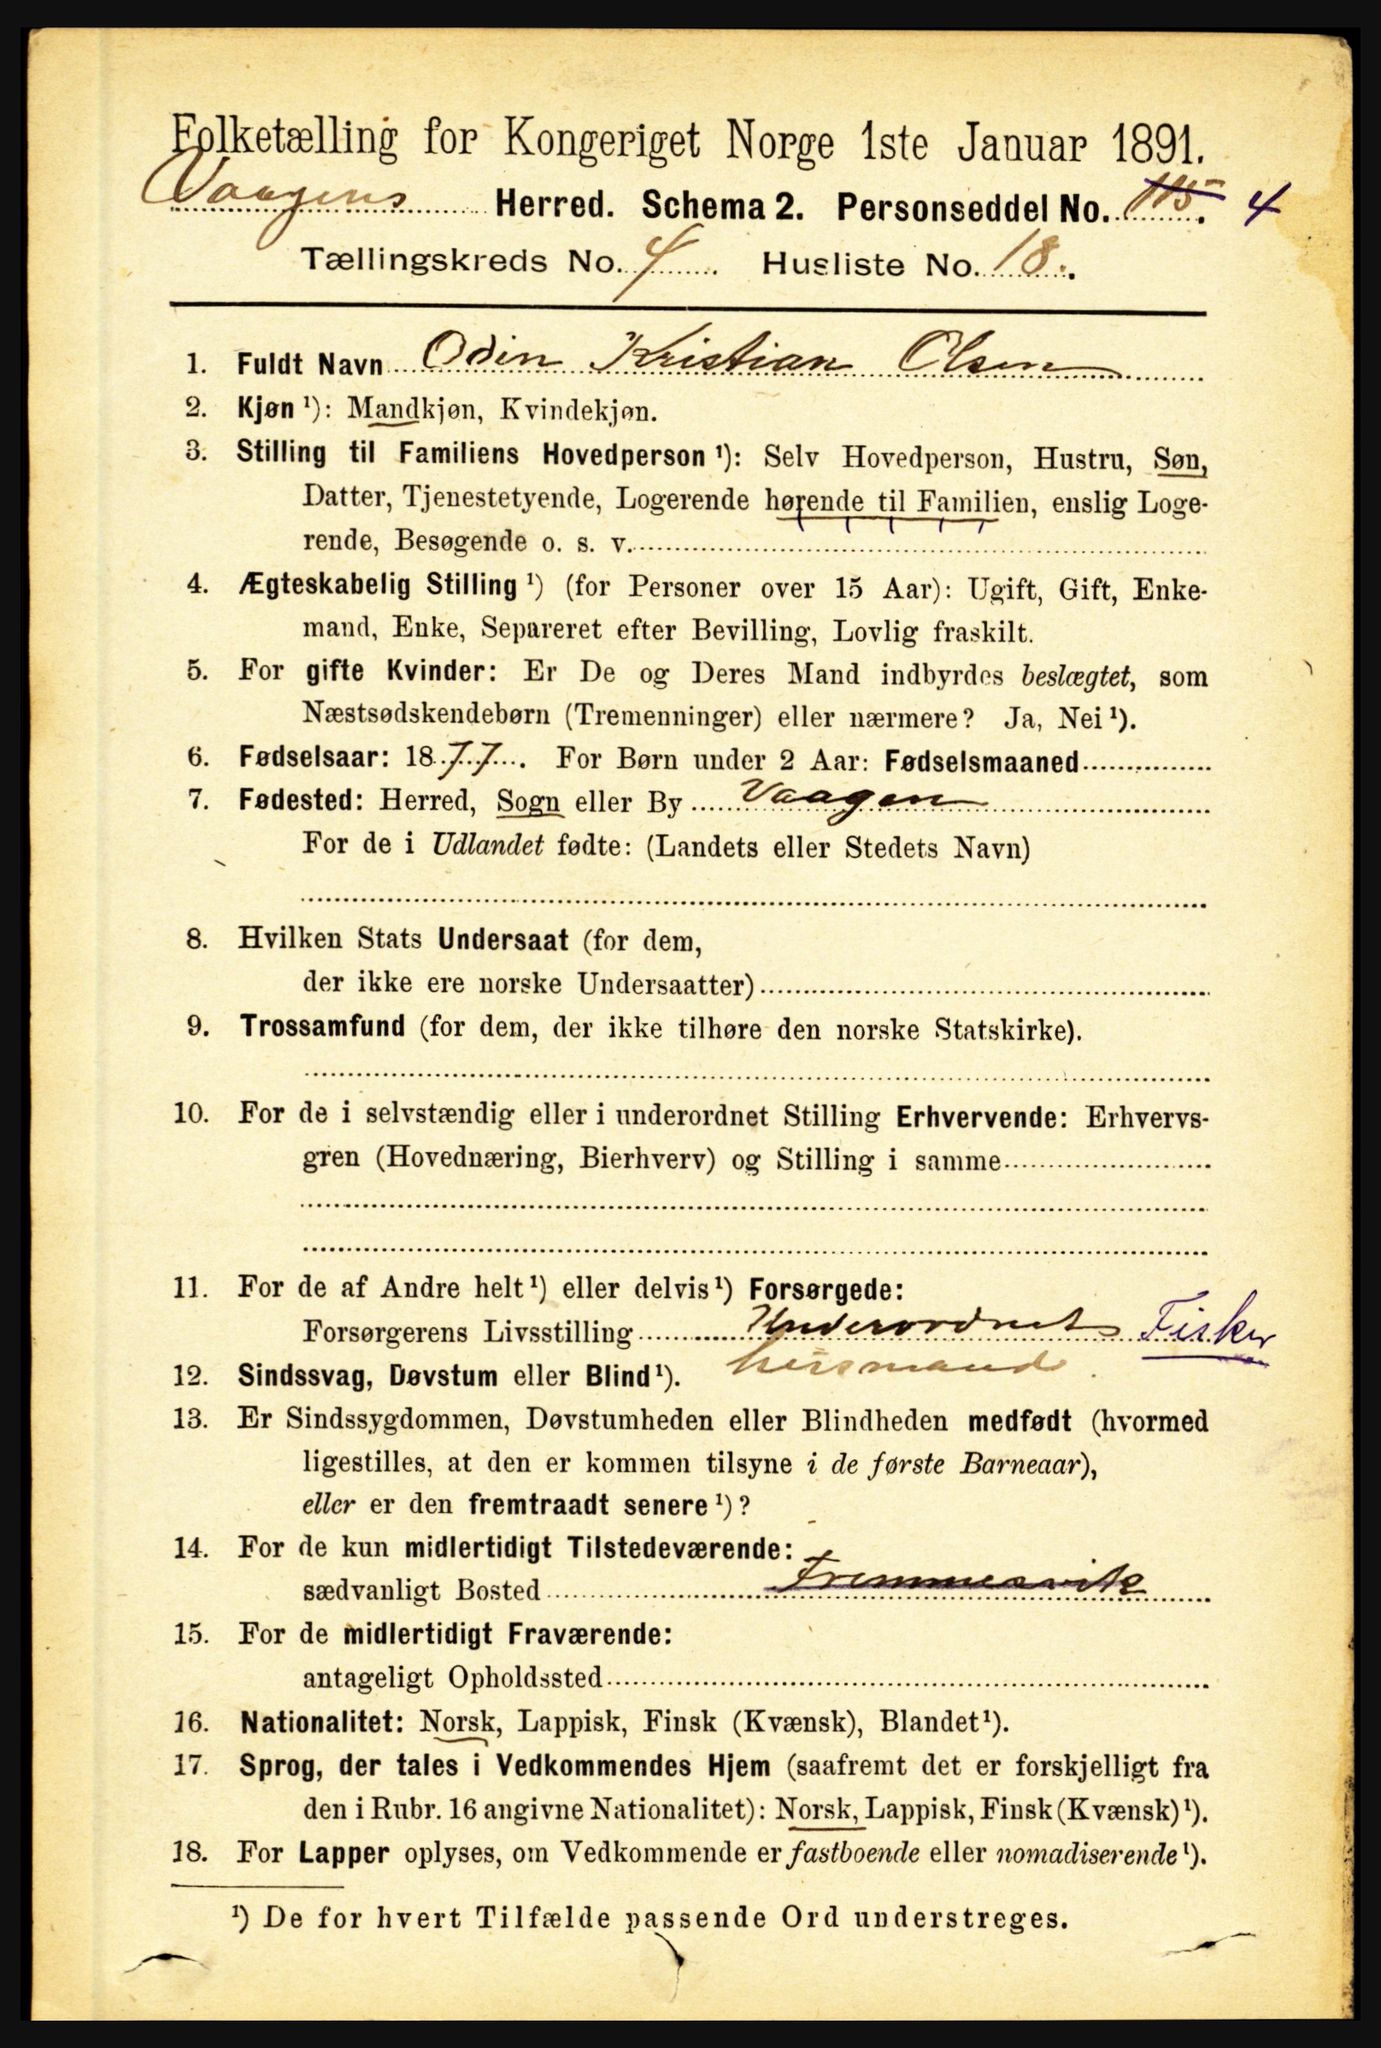 Folketælling for Kongeriget Norge 1ste Januar 1891.
Vaagens Herred. Schema 2. Personseddel No. 115. 4
Tællingskreds No. 4 Husliste No. 18.
1. Fuldt Navn Odin Kristian Olsen
2. Kjøn ¹): Mandkjøn, Kvindekjøn.
3. Stilling til Familiens Hovedperson ¹): Selv Hovedperson, Hustru, Søn,
Datter, Tjenestetyende, Logerende hørende til Familien, enslig Loge-
rende, Besøgende o. s. v.
4. Ægteskabelig Stilling ¹) (for Personer over 15 Aar): Ugift, Gift, Enke-
mand, Enke, Separeret efter Bevilling, Lovlig fraskilt.
5. For gifte Kvinder: Er De og Deres Mand indbyrdes beslægtet, som
Næstsødskendebørn (Tremenninger) eller nærmere? Ja, Nei ¹).
6. Fødselsaar: 1877. For Børn under 2 Aar: Fødselsmaaned
7. Fødested: Herred, Sogn eller By Vaagen
For de i Udlandet fødte: (Landets eller Stedets Navn)
8. Hvilken Stats Undersaat (for dem,
der ikke ere norske Undersaatter)
9. Trossamfund (for dem, der ikke tilhøre den norske Statskirke).
10. For de i selvstændig eller i underordnet Stilling Erhvervende: Erhvervs-
gren (Hovednæring, Bierhverv) og Stilling i samme
11. For de af Andre helt ¹) eller delvis ¹) Forsørgede:
Forsørgerens Livsstilling Underordnet Fisker
12. Sindssvag, Døvstum eller Blind ¹). husmand.
13. Er Sindssygdommen, Døvstumheden eller Blindheden medfødt (hvormed
ligestilles, at den er kommen tilsyne i de første Barneaar),
eller er den fremtraadt senere ¹)?
14. For de kun midlertidigt Tilstedeværende:
sædvanligt Bosted Fremmesvik
15. For de midlertidigt Fraværende:
antageligt Opholdssted
16. Nationalitet: Norsk, Lappisk, Finsk (Kvænsk), Blandet ¹).
17. Sprog, der tales i Vedkommendes Hjem (saafremt det er forskjelligt fra
den i Rubr. 16 angivne Nationalitet): Norsk, Lappisk, Finsk (Kvænsk) ¹).
18. For Lapper oplyses, om Vedkommende er fastboende eller nomadiserende ¹).
¹) De for hvert Tilfælde passende Ord understreges.